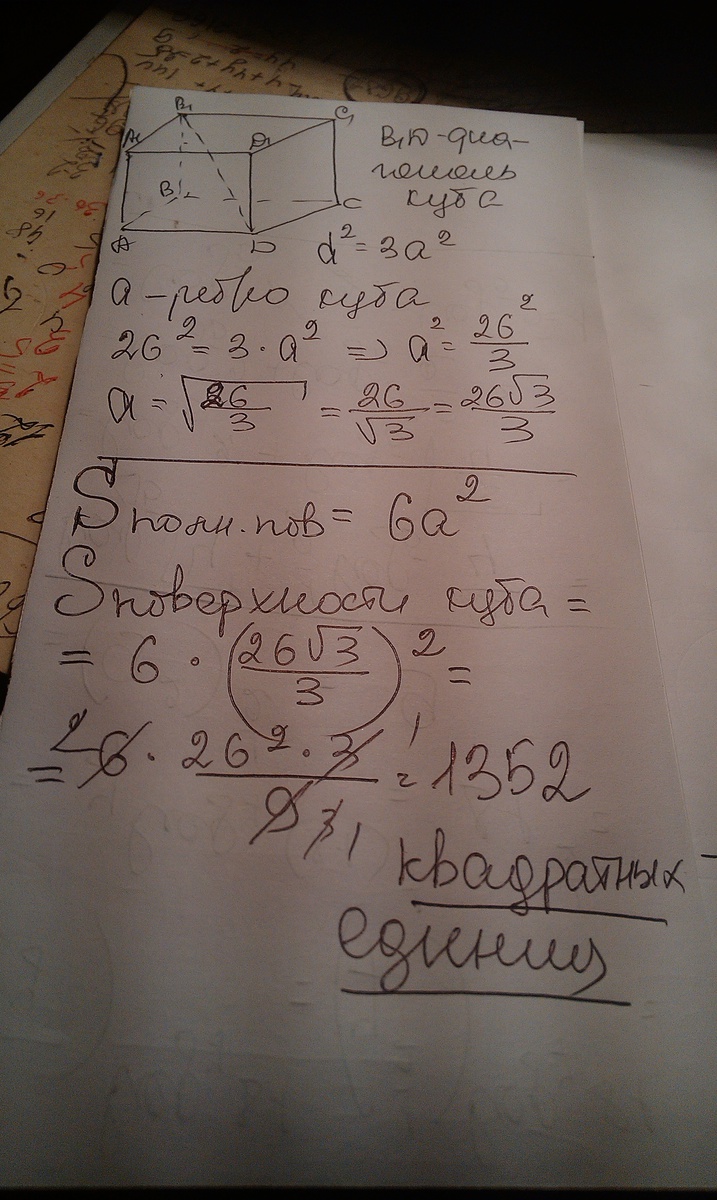 B₁ C₁
A₁ D₁
B C
A D
B₁D - диа-
гональ
куба
d² = 3a²
a - ребро куба
26² = 3 · a² => a² = 26²/3
a = √26/3 = 26/√3 = 26√3/3
Sполн.пов = 6a²
Sповерхности куба =
= 6 · (26√3/3)² =
= 6 · 26² · 3/9 = 1352
2 1
3 1
квадратных
единиц